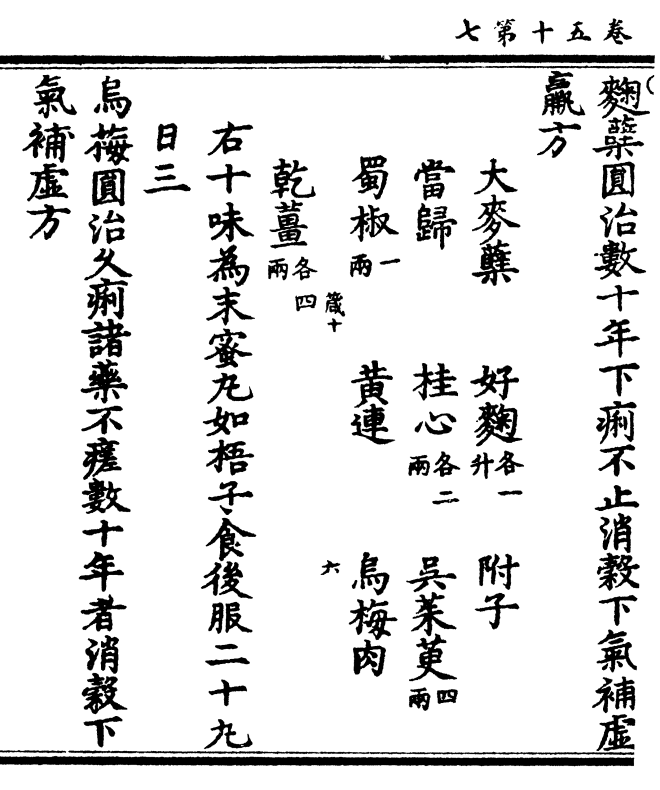 卷五十第七
麴蘖圓治數十年下痢不止消穀下氣補虛
羸方
大麥蘖 好麴各一升 附子
當歸 桂心各二兩 吳茱萸四兩
蜀椒一兩 黃連 烏梅肉
乾薑各四兩
箴十
六
右十味為末蜜丸如梧子食後服二十丸
日三
烏梅圓治久痢諸藥不瘥數十年者消穀下
氣補虛方